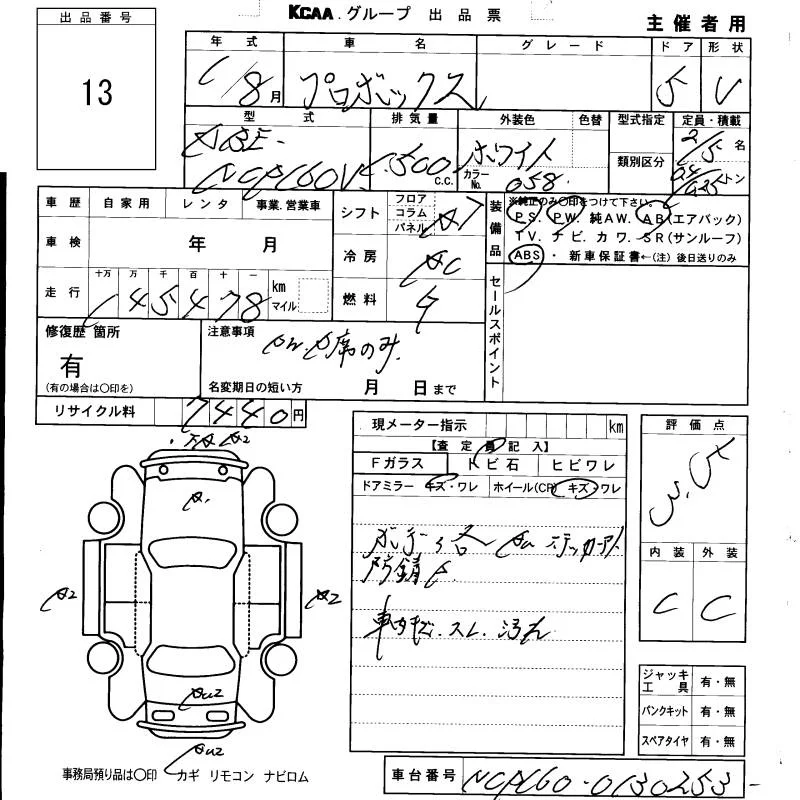 KCAA グループ 出品票
主催者用
出品番号
13
年式 車名 グレード ドア 形状
/8月 プロボックス 5 V
型式 排気量 外装色 色替 型式指定 定員・積載
DBE- 1500 c.c. ホワイト 2/5 名
NCP160V カラーNo. 058 類別区分 トン
車歴 自家用 レンタ 事業.営業車
車検 年 月
走行 十万 万 千 百 十 一
145478 km マイル
シフト フロア コラム パネル
冷房 AC
燃料
装備品 ※純正のみ○印をつけて下さい。
PS. PW. 純AW. AB(エアバック)
TV. ナビ. カワ. SR(サンルーフ)
ABS・新車保証書←(注) 後日送りのみ
セールスポイント
修復歴 箇所
有
(有の場合は○印を)
注意事項
席のみ
名変期日の短い方 月 日まで
リサイクル料 7440円
現メーター指示 km
【査定員記入】
Fガラス トビ石 ヒビワレ
ドアミラー キズ・ワレ ホイール(CP) キズ・ワレ
ボデー各
防錆
スレ 汚れ
評価点
3.5
内装 外装
C C
A2 A2
ジャッキ工具 有・無
パンクキット 有・無
スペアタイヤ 有・無
事務局預り品は○印 カギ リモコン ナビロム
車台番号 NCP160-0130253